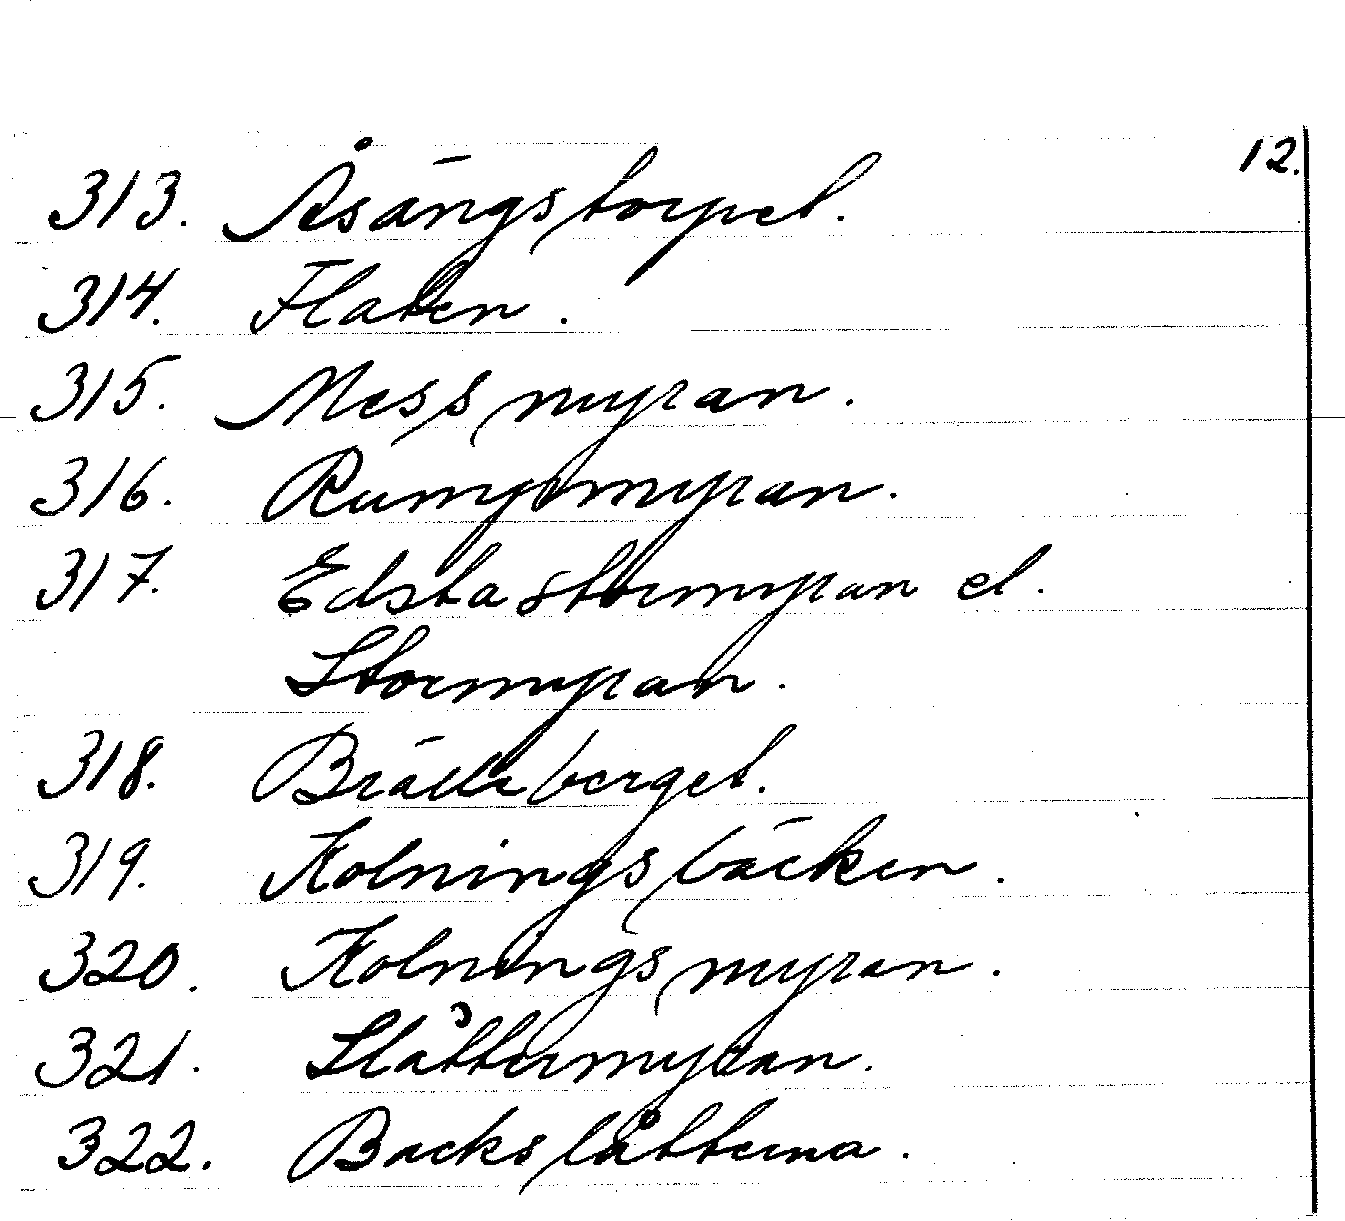 12.
313. Åsängstorpet.
314. Flaten.
315. Messmyran.
316. Rumpmyran.
317. Edsta stormyran el.
Stormyran.
318. Brällaberget.
319. Kolningsbäcken.
320. Kolningsmyran.
321. Slåttermyran.
322. Backslåtterna.